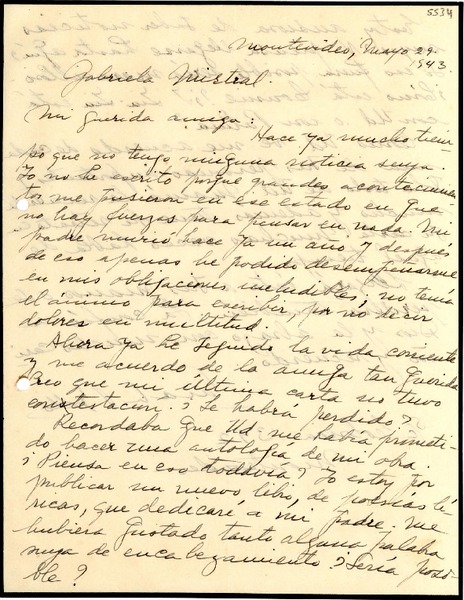 5534
Montevideo, Mayo 29.
1943.
Gabriela Mistral.
Mi querida amiga: Hace ya mucho tiem-
po que no tengo ninguna noticia suya.
Yo no he escrito porque grandes acontecimien
tos me pusieron en ese estado en que
no hay fuerzas para pensar en nada. Mi
padre murió hace ya un año y después
de eso apenas he podido desempeñarme
en mis obligaciones ineludibles; no tenía
el ánimo para escribir, por no decir
dolores en multitud.
Ahora ya he seguido la vida corriente
y me acuerdo de la amiga tan querida
Creo que mi última carta no tuvo
contestación. ¿Se habrá perdido?
Recordaba que Ud. me había prometi-
do hacer una antología de mi obra.
¿Piensa en eso todavía? Yo estoy por
publicar un nuevo libro, de poesías lí-
ricas, que dedicaré a mi padre. Me
hubiera gustado tanto alguna palabra
suya de encabezamiento ¿Sería posi-
ble?